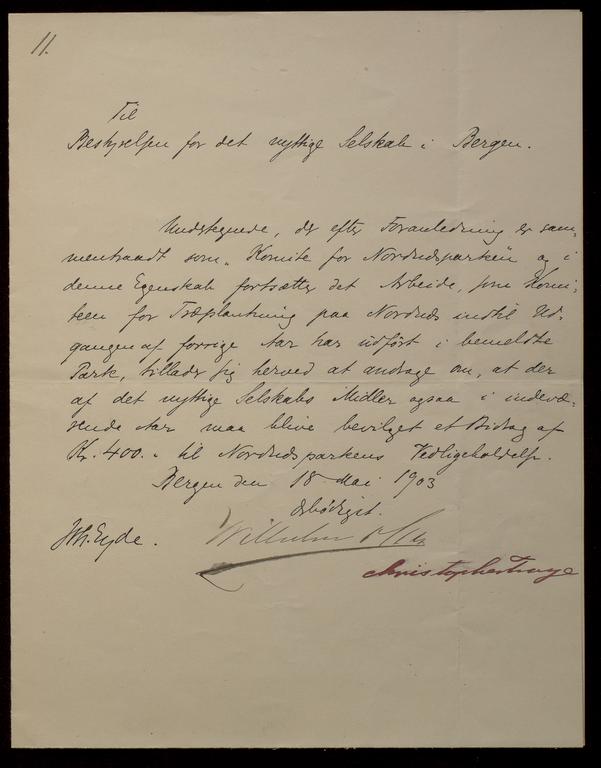 11.
Til
Bestyrelsen for det nyttige Selskab i Bergen.
Undertegnede, der efter Foranledning er sam-
mentraadt som "Komite for Nordnæsparken" og i
denne Egenskab fortsætter det Arbeide, som Komi-
teen for Træplantning paa Nordnæs indtil Ud-
gangen af forrige Aar har udført i bemeldte
Park, tillader sig herved at andrage om, at der
af det nyttige Selskabs Midler ogsaa i indevæ-
rende Aar maa blive bevilget et Bidrag af
Kr. 400.- til Nordnæsparkens Vedligeholdelse.
Bergen den 18 Mai 1903
Ærbødigst.
Joh. Eyde. Wilhelm